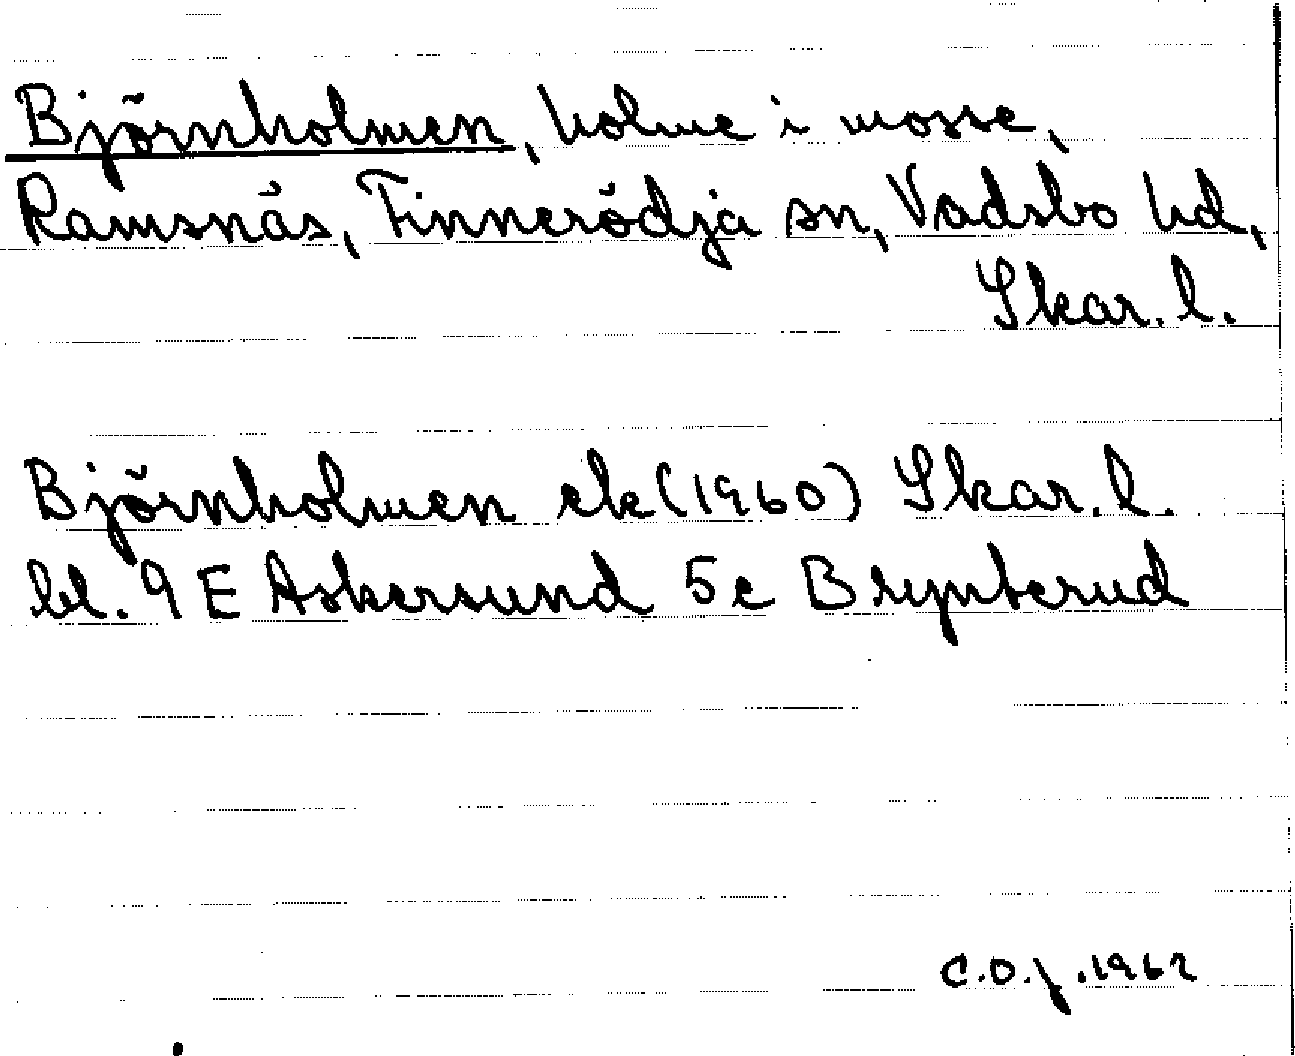 Björnholmen, holme i mosse,
Ramsnäs, Finnerödja sn, Vadsbo hd,
Skar. l.
Björnholmen ek (1960) Skar. l.
bl. 9 E Askersund 5c Brynterud
C.O.J. 1962